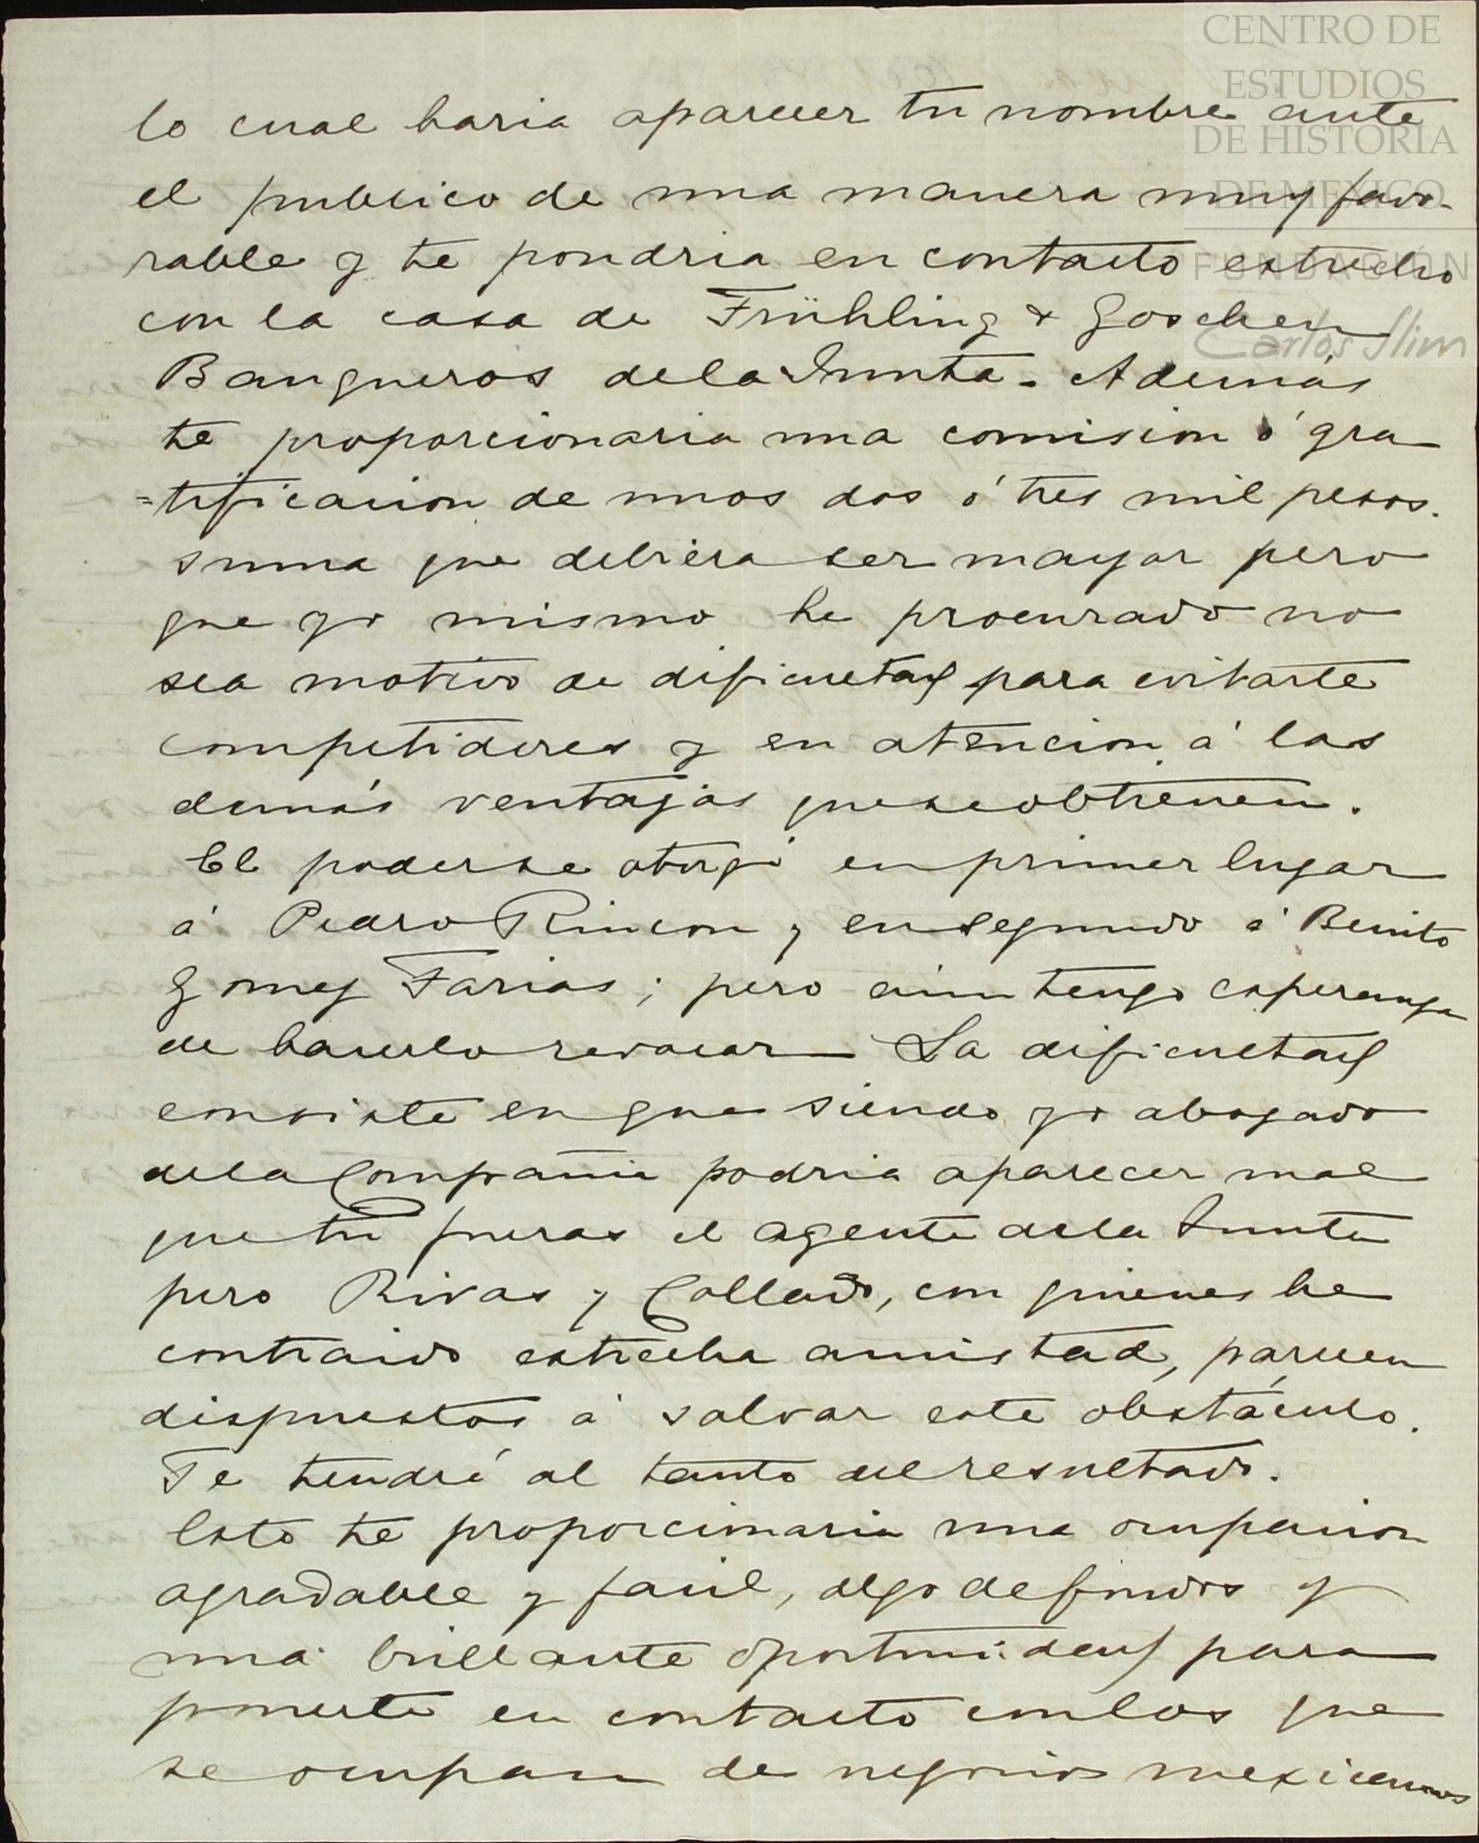 CENTRO DE
ESTUDIOS
DE HISTORIA
DE MEXICO
FUNDACIÓN
Carlos Slim
lo cual haria aparecer tu nombre ante
el publico de una manera muy favo-
rable y te pondria en contacto estrecho
con la casa de Frühling & Goschen
Banqueros de la Junta. Además
te proporcionaria una comision ó gra
=tificacion de unos dos ó tres mil pesos.
suma que debiera ser mayor pero
que yo mismo he procurado no
sea motivo de dificultad para evitarte
competidores y en atencion á las
demás ventajas que se obtienen.
El poder se otorgó en primer lugar
á Pedro Rincon y en segundo á Benito
Gomez Farias; pero aun tengo esperanza
de hacerlo revocar La dificultad
consiste en que siendo yo abogado
de la Compañia podria aparecer mal
que tu fueras el agente de la Junta
pero Rivas y Collado, con quienes he
contraido estrecha amistad, parecen
dispuestos á salvar este obstáculo.
Te tendré al tanto del resultado.
Esto te proporcionaria una ocupacion
agradable y facil, algo de fondos y
una brillante oportunidad para
ponerte en contacto con los que
se ocupan de negocios mexicanos